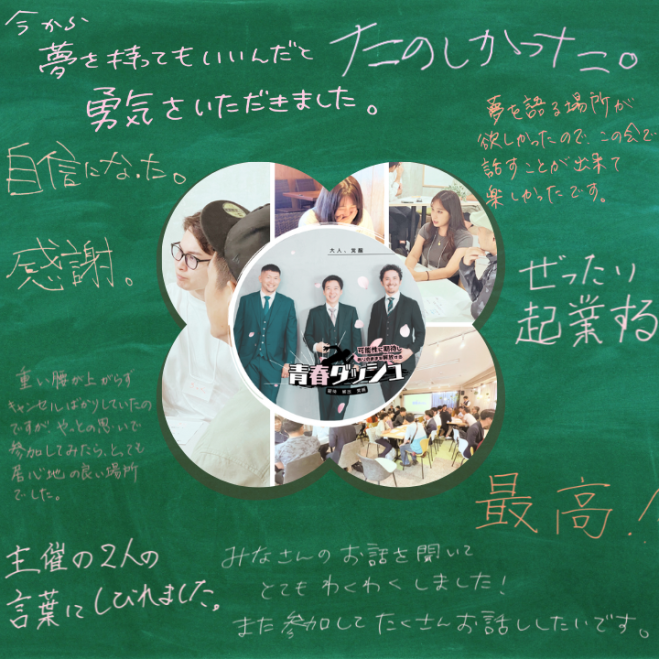 今から
夢を持ってもいいんだと
勇気をいただきました。
たのしかった。
夢を語る場所が
欲しかったので、この会で
話すことが出来て
楽しかったです。
自信になった。
感謝。
ぜったい
起業する
大人、覚醒
可能性に期待し
青春ダッシュ
重い腰が上がらず
キャンセルばかりしていたの
ですが、やっとの思いで
参加してみたら、とっても
居心地の良い場所
でした。
最高!
主催の2人の
言葉にしびれました。
みなさんのお話を聞いて
とてもわくわくしました!
また参加してたくさんお話ししたいです。